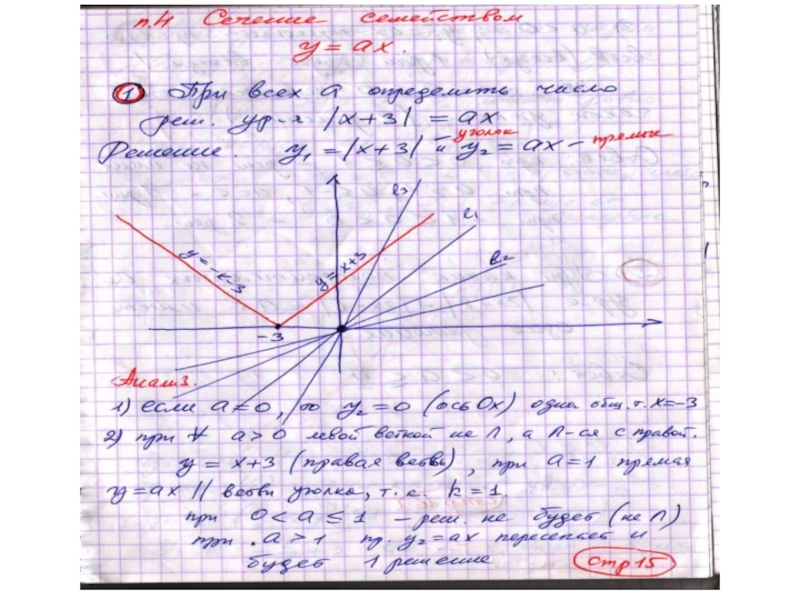 п.4 Сечение семейством
y = ax.
① При всех a определить число
реш. ур-я |x+3| = ax
Решение. y₁ = |x+3| уголок и y₂ = ax – прямые
l₃
l₁
l₂
y=-x-3
y=x+3
-3
Анализ.
1) если a=0, то y₂=0 (ось Ox) одна общ. т. x=-3
2) при ∀ a>0 левой веткой не Λ, а Λ-ся с правой.
y = x+3 (правая ветвь), при a=1 прямая
y=ax || ветви уголка, т.к. k=1.
при 0<a≤1 – реш. не будет (не Λ)
при a>1 пр. y₂=ax пересекает и
будет 1 решение
стр 15